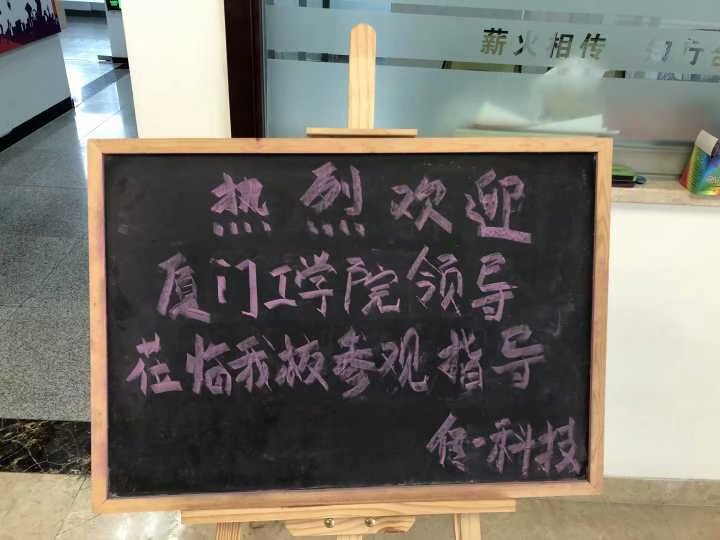 薪火相传 知行合
热烈欢迎
厦门工学院领导
莅临我校参观指导
科技